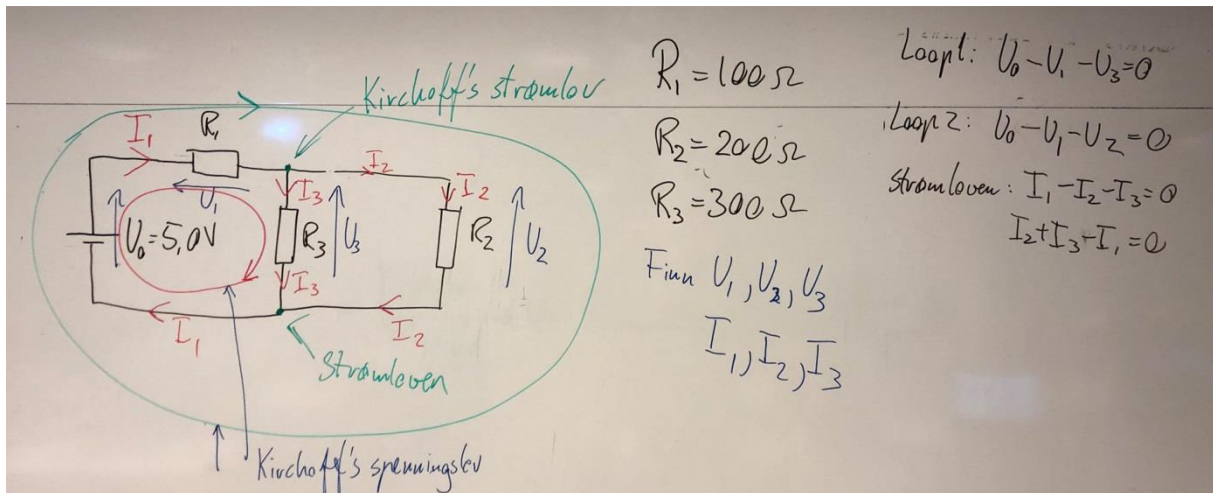 Kirchoff's strømlov
I₁
R₁
I₂
I₃
I₂
U₁
U₀=5,0V
R₃
U₃
R₂
U₂
I₃
I₁
I₂
Strømloven
Kirchoff's spenningslov
R₁=100Ω
R₂=200Ω
R₃=300Ω
Finn U₁,U₂,U₃
I₁,I₂,I₃
Loop1: U₀-U₁-U₃=0
Loop2: U₀-U₁-U₂=0
Strømloven: I₁-I₂-I₃=0
I₂+I₃-I₁=0